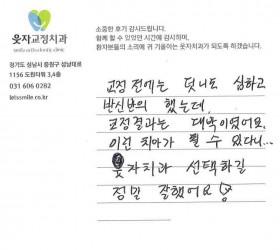 웃자교정치과
smile orthodontic clinic
경기도 성남시 중원구 성남대로
1156 도원타워 3,4층
031 606 0282
letssmile.co.kr
소중한 후기 감사드립니다.
함께 할 수 있었던 시간에 감사하며,
환자분들의 소리에 귀 기울이는 웃자치과가 되도록 하겠습니다.
교정 전에는 덧니도 심하고
반신반의 했는데,
교정결과는 대박이었어요.
이런 치아가 될 수 있다니...
웃자치과 선택하길
정말 잘했어요